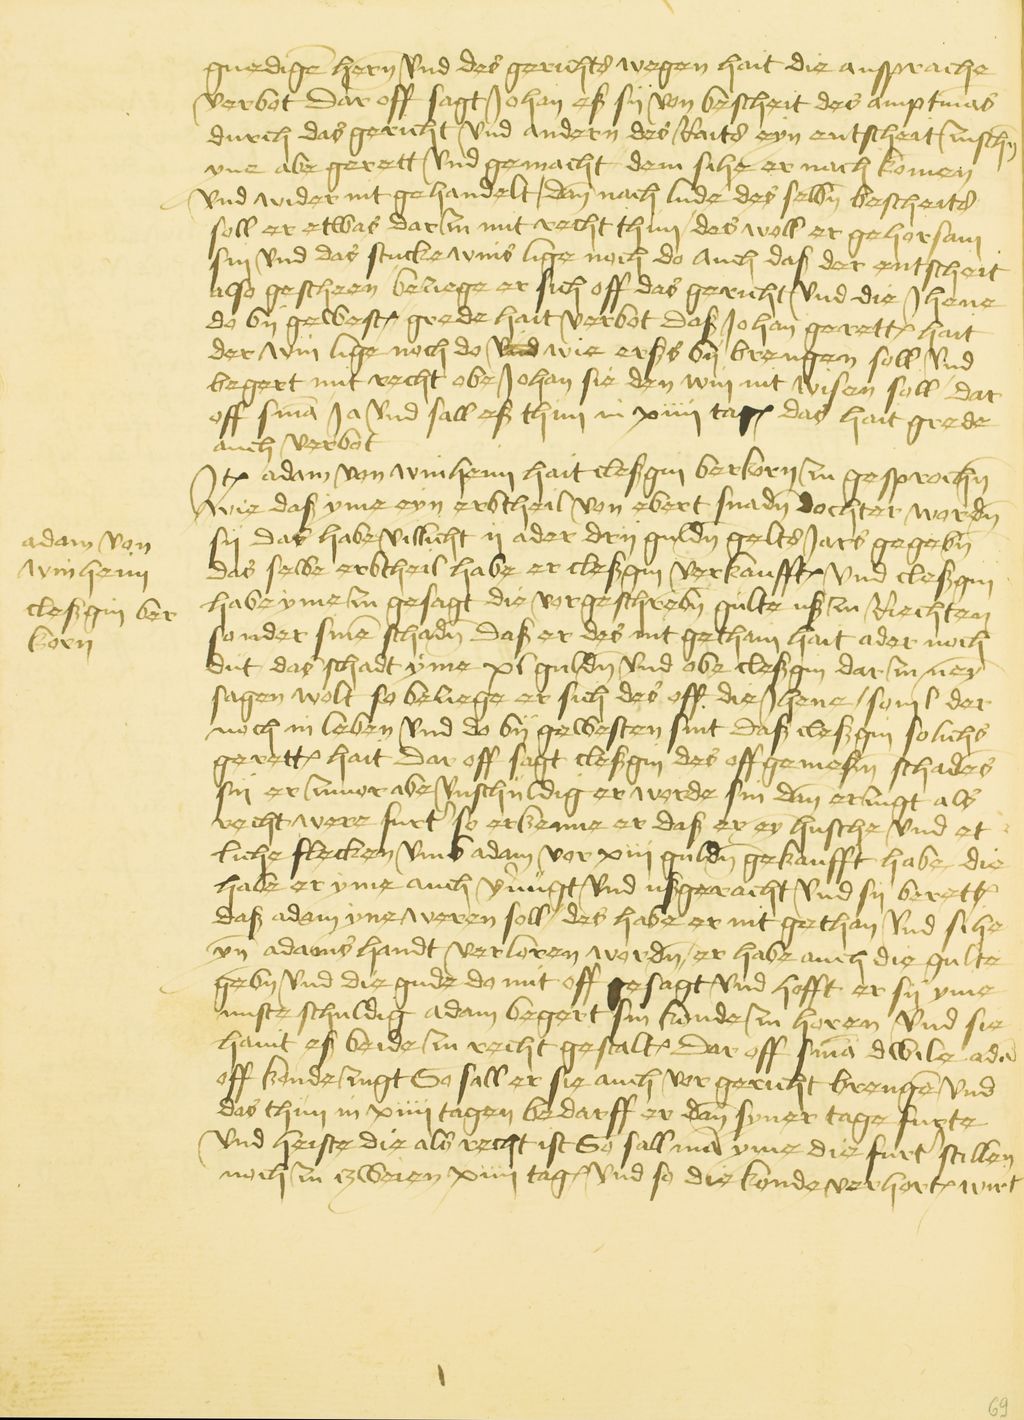 gnedigen hern vnd des gerichts wegen hait die ansprache
verbot Dar off sagt Johan eß sij von bescheit des amptmans
durch das gericht vnd andern des Raits eyn entscheit zuschen
yne abe gerett vnd gemacht dem sihe er nach komen
vnd wider nit gehandelt / dan nach lude des selben bescheits
soll er etwas dar zu mit recht thun / des woll er gehorsam
sin vnd das stucke wins lige noch do Auch daß der entscheit
also gescheen beziege er sich off das gericht vnd die Jhene
do bij gewest grede hait verbot daß Johan gerett hait
der win lige noch do wie erß bij brengen soll vnd
begert mit recht obe Johan sie den win nit wisen soll / Dar
off sma Ja vnd sall eß thun in xiiii tagen das hait grede
auch verbot
Jtem adam von winheim hait cleßgin berkorn zu gesprochen
wie daß yme eyn erbtheil von ebert snaden dochter worden
sij das habe villicht ij ader drij gulden gelts Jars gegeben
das selbe erbtheil habe er cleßgin verkaufft vnd cleßgin
habe yme zu gesagt die vorgeschreben gulte uß zu Riechten
sonder sinen schaden Daß er des nit gethan hait ader noch
dut das schadt yme xl gulden vnd obe cleßgin dar zu neyn
sagen wolt so beziege er sich des off die Jhene / so vil der
noch in leben vnd do bij gewesten sint daß cleßgin solichs
gerett hait Dar off sagt cleßgin des offgemessen schades
sij er zuuor abe vnschuldig er worde sin dan erzugt als
recht were furter so erkenne er daß er eyn husche vnd et
liche flecken vmb adam vor xiii gulden gekaufft habe / die
habe er yme auch vernugt vnd ußgeracht vnd sij berett
daß adam yne weren soll / des habe er nit gethan vnd sihe
yn adams handt verloren worden / er habe auch die gulte
geben vnd die gude do mit off gesagt vnd hofft er sij yme
nuste schuldig adam begert sin kunde zu horen vnd sie
haint eß beide zu recht gestalt Dar off sma Dwile adam
off konde zugt So sall er sie auch vor gericht brengen vnd
das thun in xiiii tagen bedarff er dan syner tage furter
vnd heiste die als recht ist So sall man yme die furter stillen
noch zu zweien xiiii tagen vnd so die konde verhort wirt
adam von
winheim
cleßgin ber
korn
69